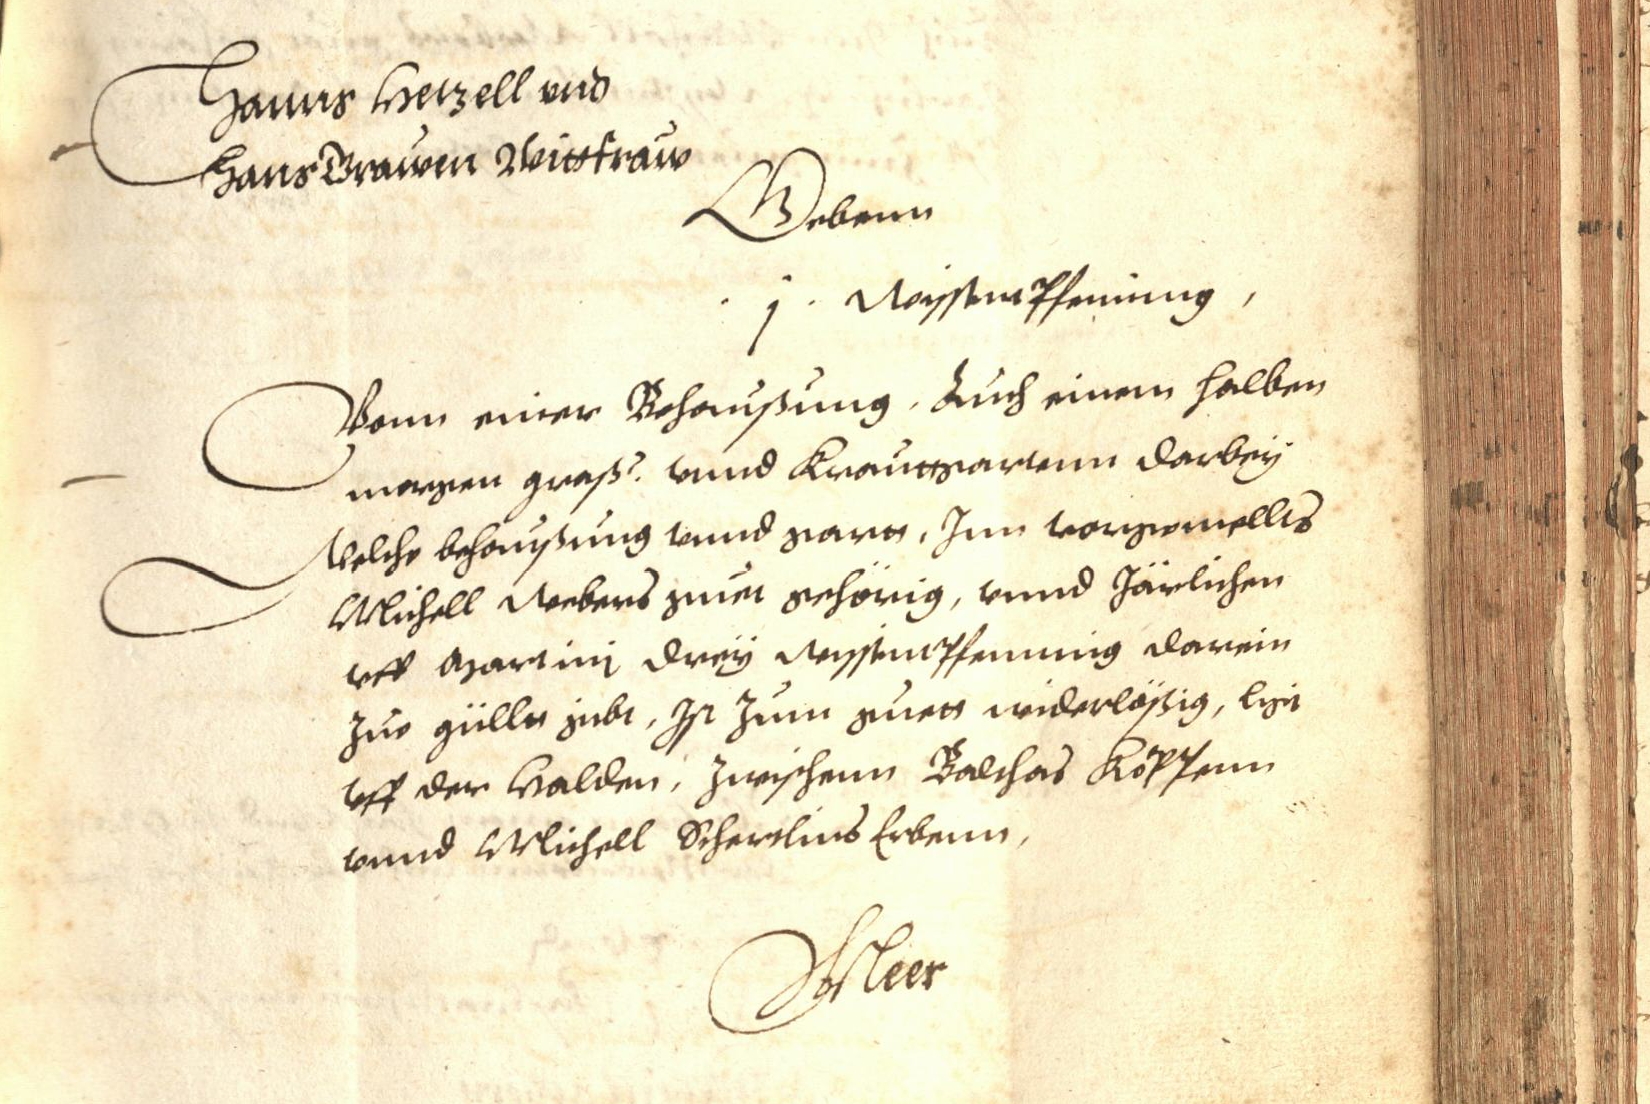 Hanns Hetzell vnd
Hans Brawen Wittfraw
Gebenn
. j . Weyssenn Pfenning,
Vonn einer Behaußung, Auch einem halben
morgen graß: vnnd Krauttgartenn darbey
Welche behaußung vnnd gartt, Inn vorgemellts
Michell Webers guet gehörig, vnnd Järlichen
vff Martinj drey Weyssenn Pfenning darein
Zue gülltt gibt, Ist Zum guett widerlößig, ligt
vff der Halden, Zwischenn Balthas Köpffenn
vnnd Michell Schertlins Erbenn,
Meer